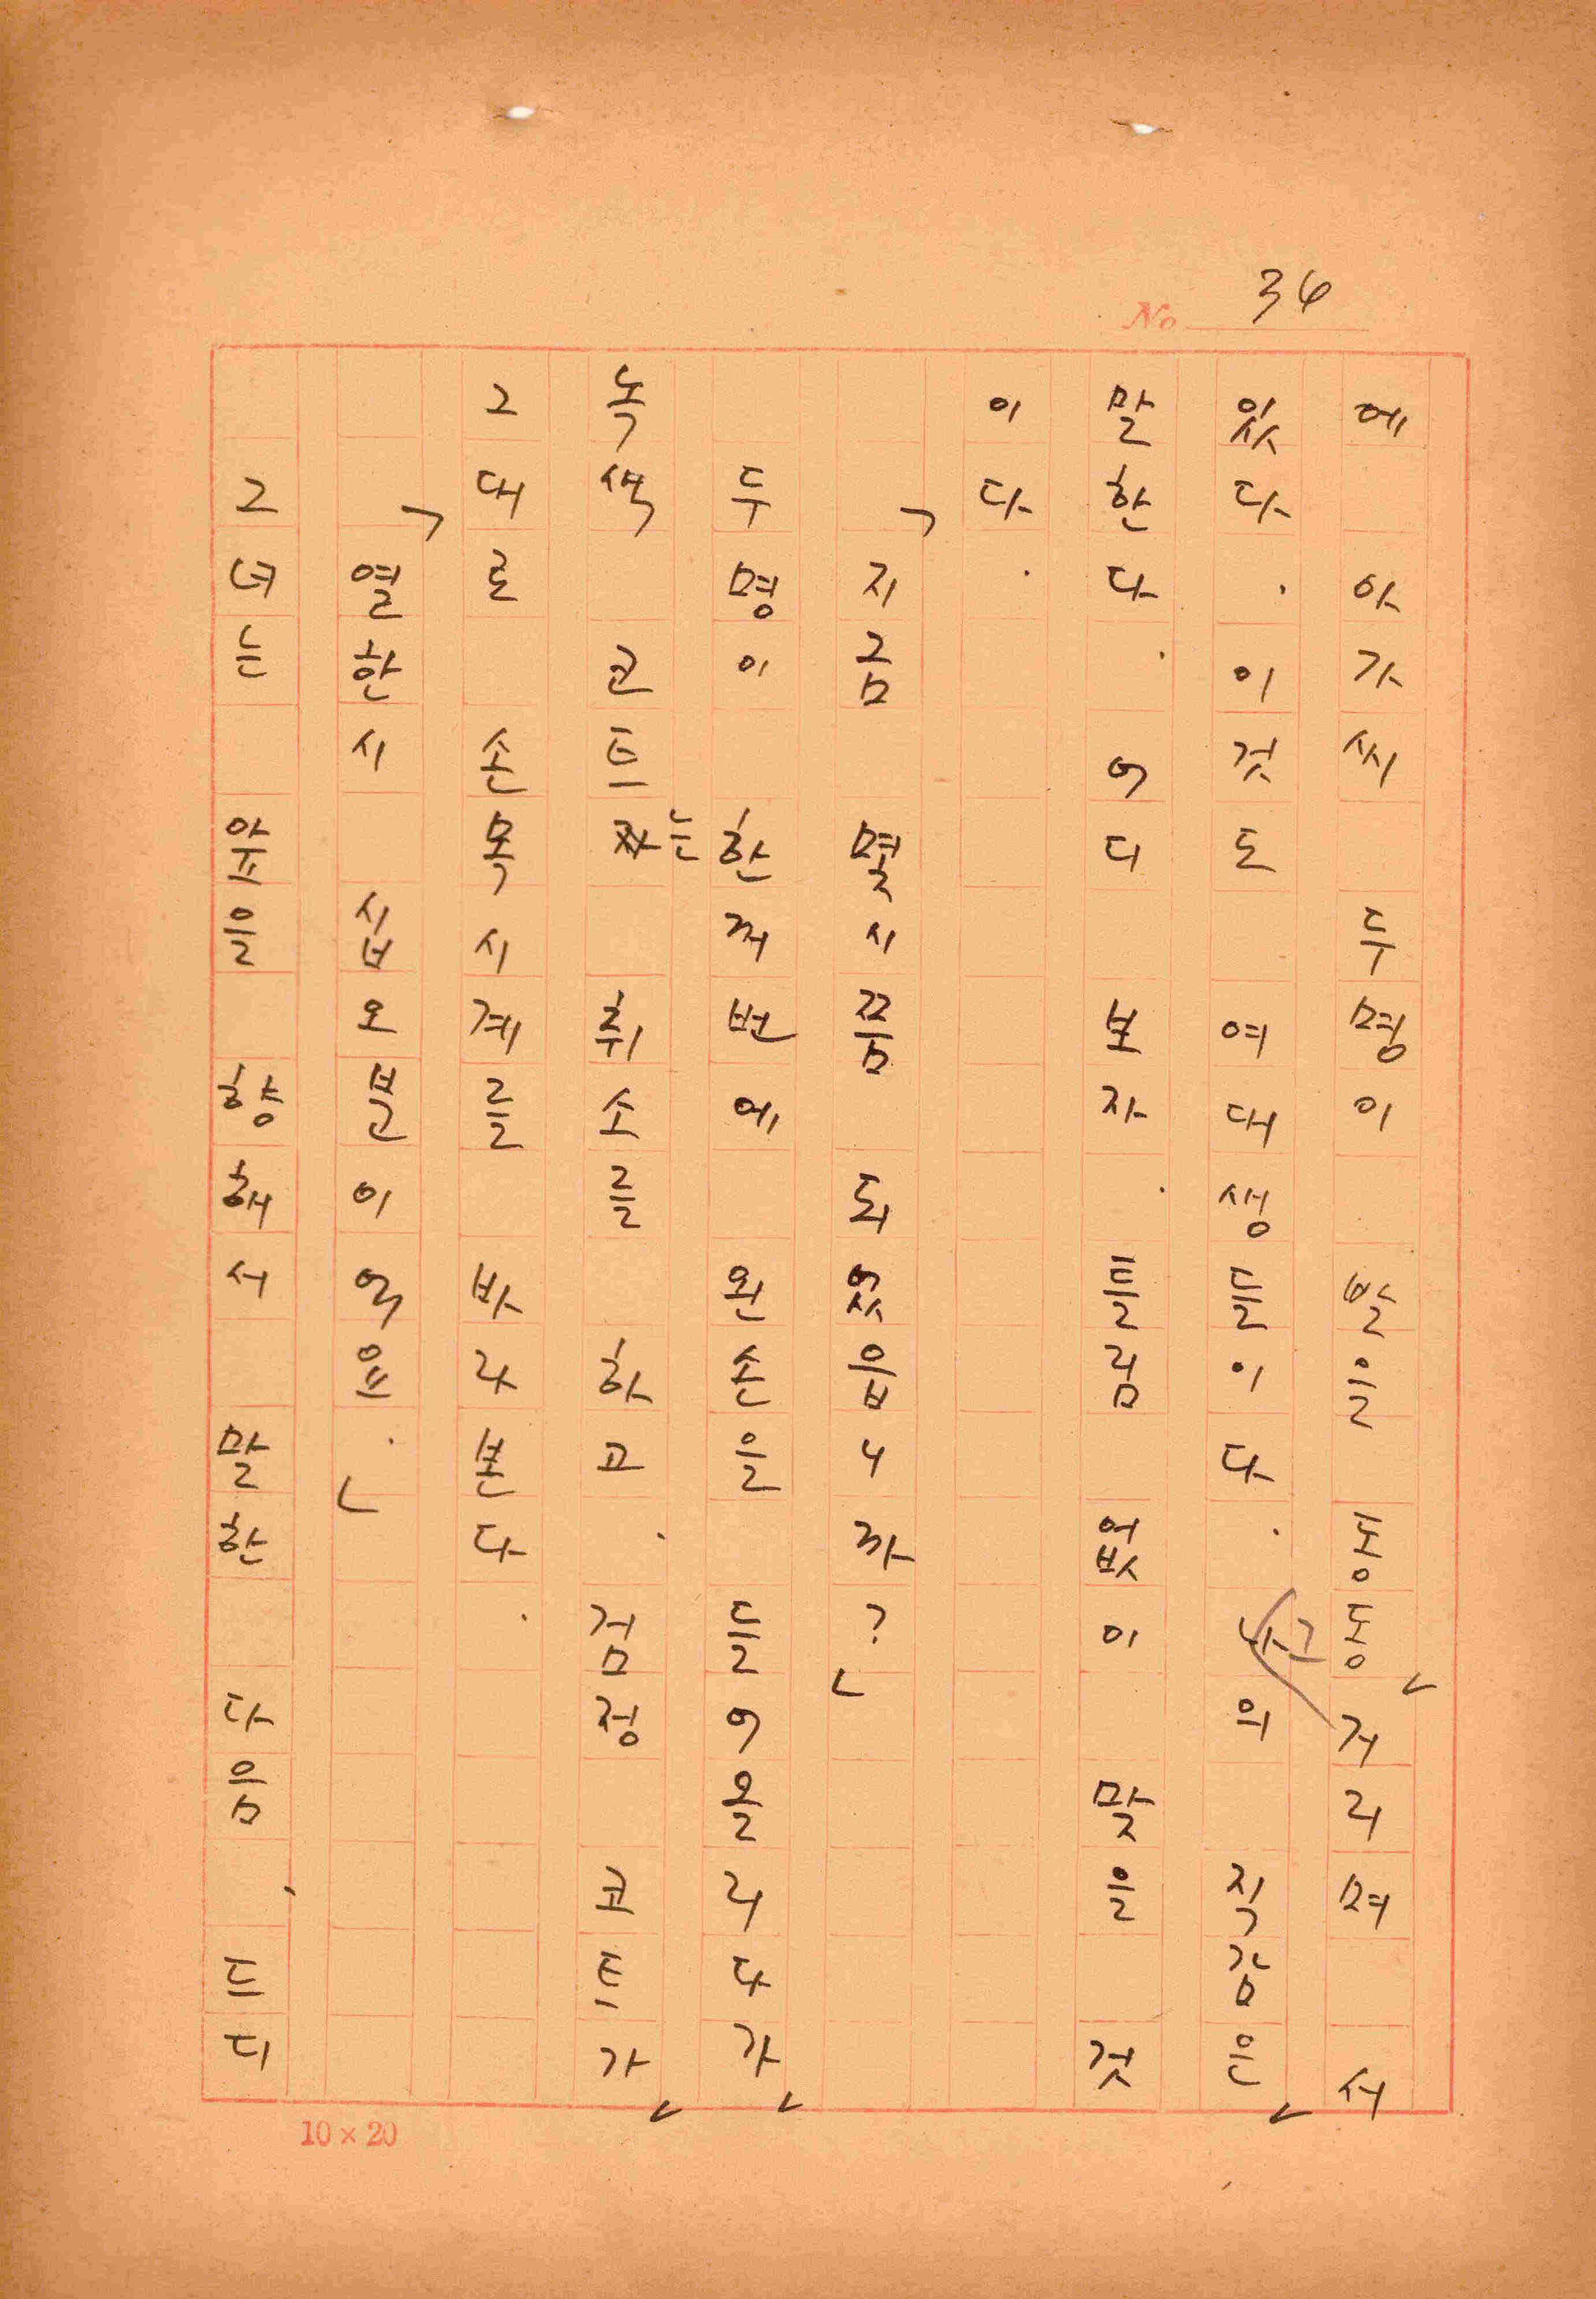 No 34
에 아가씨 두명이 발을 동동거리며 서
있다. 이것도 여대생들이다. 나의 직감은
말한다. 어디 보자. 틀림 없이 맞을 것
이다.
「지금 몇시쯤 되었읍니까?」
두명이 한꺼번에 왼손을 들어올리다가
녹색 코트는 취소를 하고. 검정 코트가
그대로 손목시계를 바라본다.
「열한시 십오분이여요.」
그녀는 앞을 향해서 말한 다음, 드디
10×20